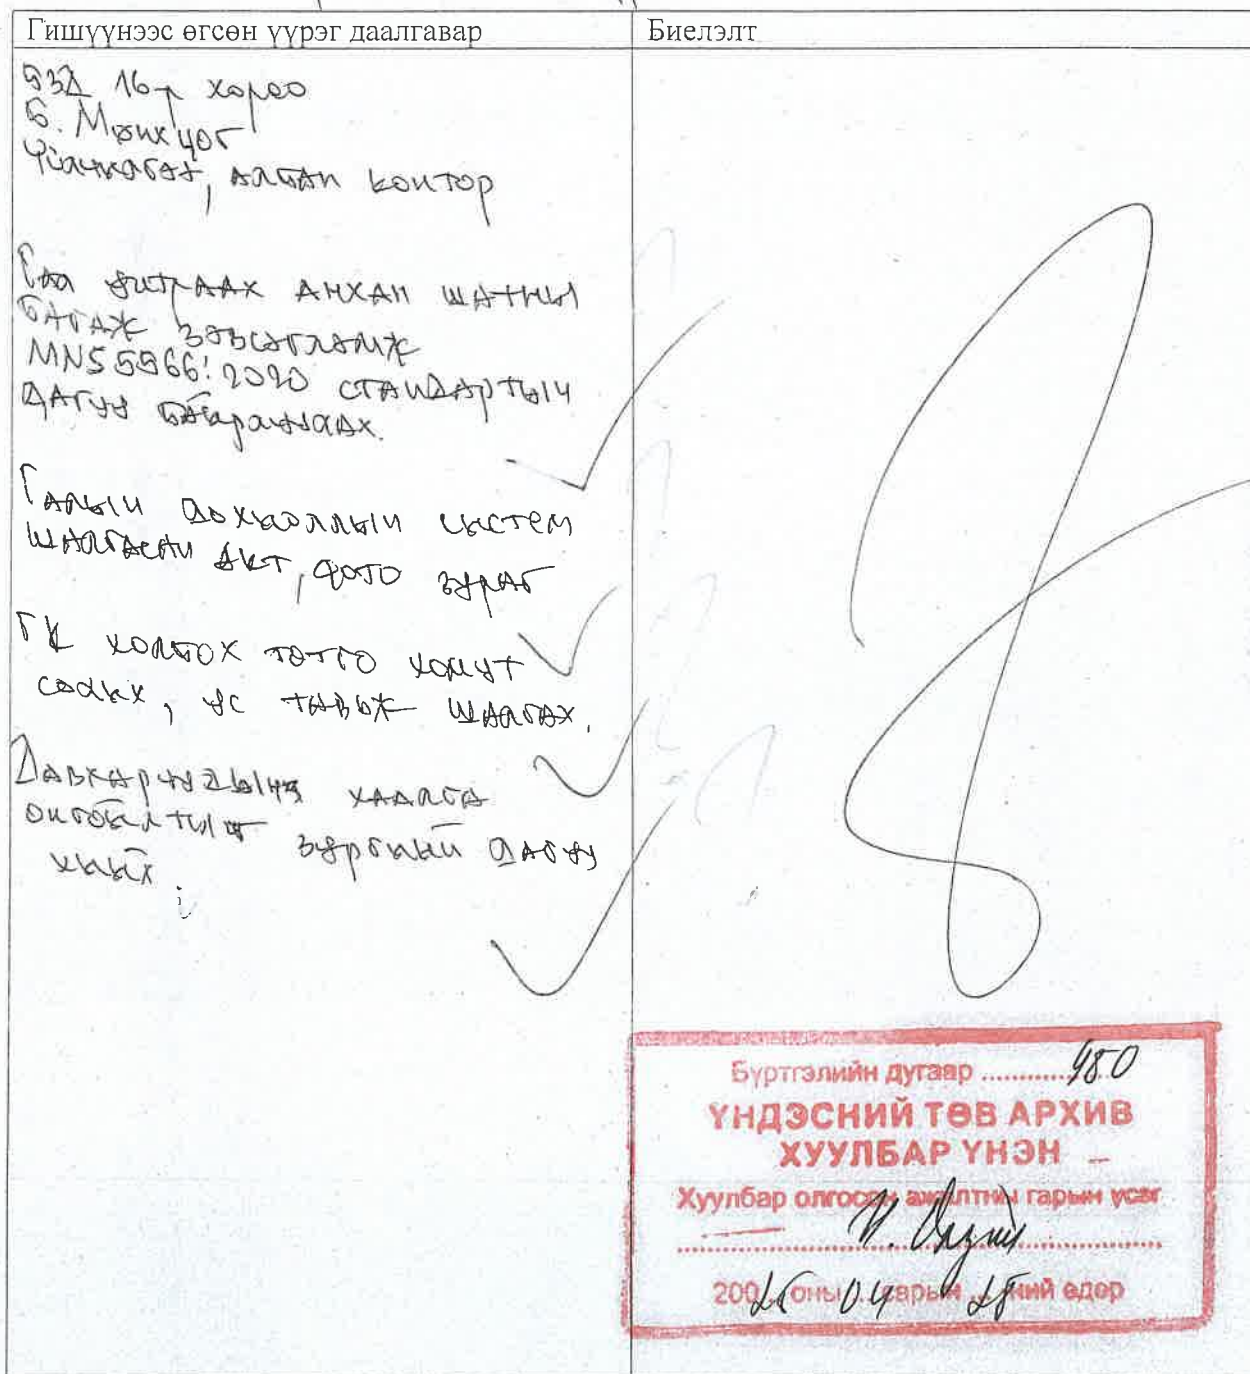 Гишүүнээс өгсөн үүрэг даалгавар
Биелэлт
БЗД 16-р хороо
Б. Мөнхцог
Үйлчилгээ, албан контор
Гал унтраах анхан шатны
багаж зэвсэглэмж
MNS 5566:2020 стандартын
дагуу байрлуулах.
Галын дохиоллын систем
шалгасан акт, фото зураг
ГК холбох толгой хомут
солих, ус тавьж шалгах.
Давхаруудын хаалга
онгойлтыг зургийн дагуу
хийх.
Бүртгэлийн дугаар ............ 480
ҮНДЭСНИЙ ТӨВ АРХИВ
ХУУЛБАР ҮНЭН
Хуулбар олгосон ажилтны гарын үсэг
200 25 оны 04 сарын 25 ний өдөр